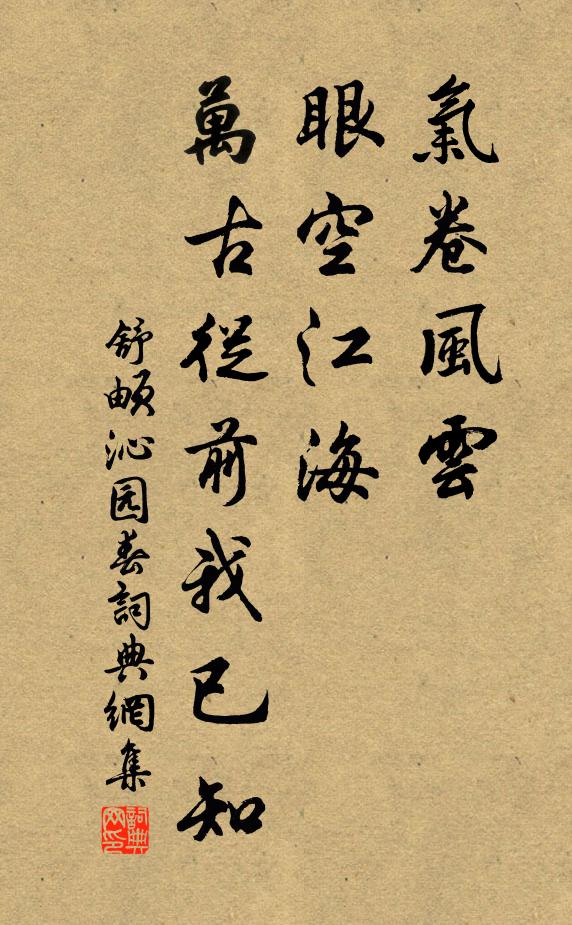 氣卷風雲
眼空江海
萬古從前我已知
舒頔沁园春詞典網集
詞典网印